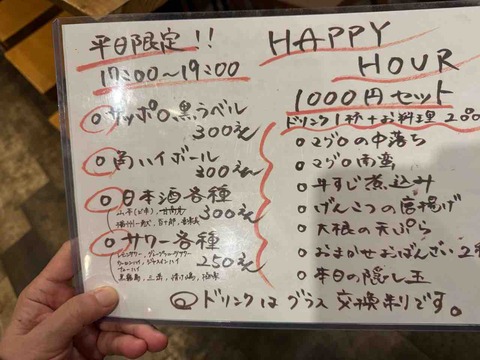 平日限定!!
17:00〜19:00
サッポロ黒ラベル
300えん
角ハイボール
300えん
日本酒各種
300えん
サワー各種
250えん
レモンサワー
HAPPY
HOUR
1000円セット
ドリンク1杯+お料理2
マグロの中落ち
マグロ南蛮
牛すじ煮込み
げんこつの唐揚げ
大根の天ぷら
おまかせおばんざい2
本日の隠し玉
ドリンクはグラス交換制です。